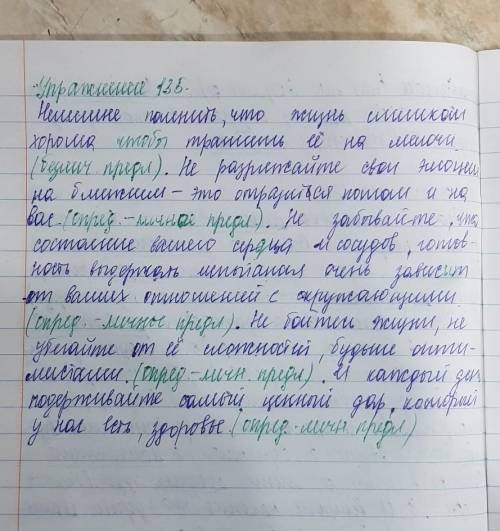 Упражнение 135.
Нелишне помнить, что жизнь слишком
хороша чтобы тратить её на мелочи
(безлич предл). Не разряжайте свои эмоции
на ближнем - это отразиться потом и на
вас (опред.-личной предл). Не забывайте, что
состояние вашего сердца и сосудов, готов-
ность выдержать испытания очень зависит
от ваших отношений с окружающими
(опред.-личное предл). Не бойтесь жизни, не
убегайте от её сложностей, будьте опти-
мистами. (опред-личн предл). И каждый день
подерживайте самый ценный дар, который
у нас есть, здоровье. (опред-личн предл)